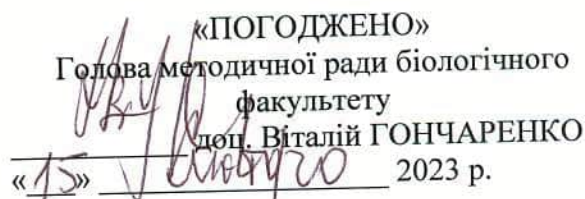 «ПОГОДЖЕНО»
Голова методичної ради біологічного
факультету
доц. Віталій ГОНЧАРЕНКО
«15» лютого 2023 р.